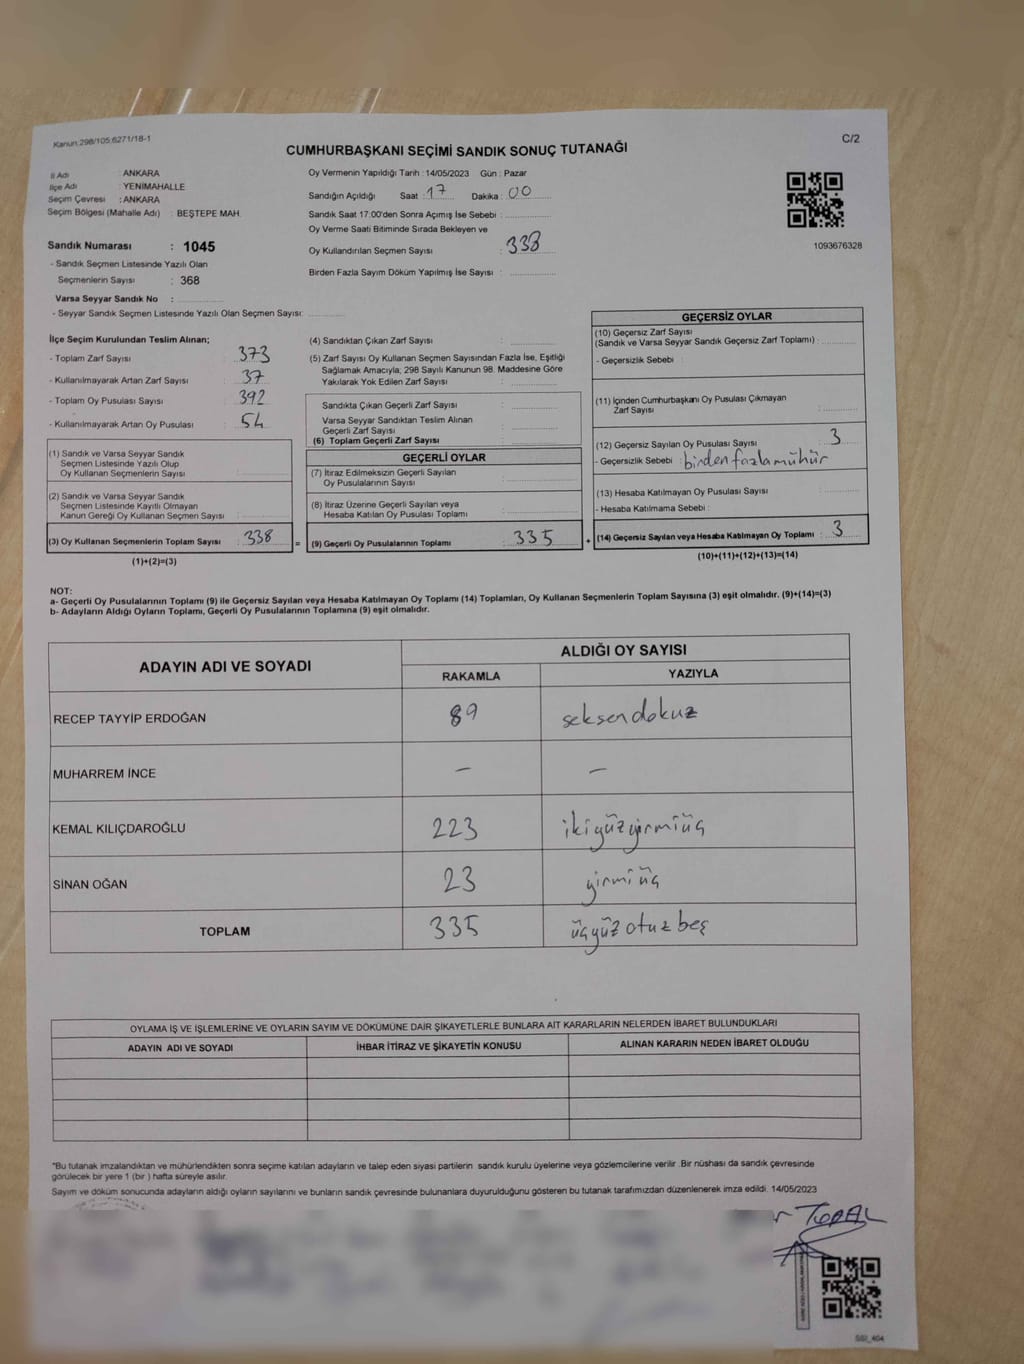 Kanun:298/105;6271/18-1
C/2
CUMHURBAŞKANI SEÇİMİ SANDIK SONUÇ TUTANAĞI
İl Adı : ANKARA
İlçe Adı : YENİMAHALLE
Seçim Çevresi : ANKARA
Seçim Bölgesi (Mahalle Adı) : BEŞTEPE MAH.
Sandık Numarası : 1045
- Sandık Seçmen Listesinde Yazılı Olan
Seçmenlerin Sayısı : 368
Varsa Seyyar Sandık No :
- Seyyar Sandık Seçmen Listesinde Yazılı Olan Seçmen Sayısı:
Oy Vermenin Yapıldığı Tarih : 14/05/2023 Gün : Pazar
Sandığın Açıldığı Saat : 17 Dakika : 00
Sandık Saat 17:00'den Sonra Açımış İse Sebebi :
Oy Verme Saati Bitiminde Sırada Bekleyen ve
Oy Kullandırılan Seçmen Sayısı : 338
Birden Fazla Sayım Döküm Yapılmış İse Sayısı :
1093676328
İlçe Seçim Kurulundan Teslim Alınan;
- Toplam Zarf Sayısı : 373
- Kullanılmayarak Artan Zarf Sayısı : 37
- Toplam Oy Pusulası Sayısı : 392
- Kullanılmayarak Artan Oy Pusulası : 54
(1) Sandık ve Varsa Seyyar Sandık
Seçmen Listesinde Yazılı Olup
Oy Kullanan Seçmenlerin Sayısı :
(2) Sandık ve Varsa Seyyar Sandık
Seçmen Listesinde Kayıtlı Olmayan
Kanun Gereği Oy Kullanan Seçmen Sayısı :
(3) Oy Kullanan Seçmenlerin Toplam Sayısı : 338
(1)+(2)=(3)
(4) Sandıktan Çıkan Zarf Sayısı :
(5) Zarf Sayısı Oy Kullanan Seçmen Sayısından Fazla İse, Eşitliği
Sağlamak Amacıyla; 298 Sayılı Kanunun 98. Maddesine Göre
Yakılarak Yok Edilen Zarf Sayısı :
Sandıkta Çıkan Geçerli Zarf Sayısı :
Varsa Seyyar Sandıktan Teslim Alınan
Geçerli Zarf Sayısı :
(6) Toplam Geçerli Zarf Sayısı :
GEÇERLİ OYLAR
(7) İtiraz Edilmeksizin Geçerli Sayılan
Oy Pusulalarının Sayısı :
(8) İtiraz Üzerine Geçerli Sayılan veya
Hesaba Katılan Oy Pusulası Toplamı :
= (9) Geçerli Oy Pusulalarının Toplamı : 335
GEÇERSİZ OYLAR
(10) Geçersiz Zarf Sayısı
(Sandık ve Varsa Seyyar Sandık Geçersiz Zarf Toplamı) :
- Geçersizlik Sebebi :
(11) İçinden Cumhurbaşkanı Oy Pusulası Çıkmayan
Zarf Sayısı :
(12) Geçersiz Sayılan Oy Pusulası Sayısı : 3
- Geçersizlik Sebebi : birden fazla mühür
(13) Hesaba Katılmayan Oy Pusulası Sayısı :
- Hesaba Katılmama Sebebi :
+ (14) Geçersiz Sayılan veya Hesaba Katılmayan Oy Toplamı : 3
(10)+(11)+(12)+(13)=(14)
NOT:
a- Geçerli Oy Pusulalarının Toplamı (9) ile Geçersiz Sayılan veya Hesaba Katılmayan Oy Toplamı (14) Toplamları, Oy Kullanan Seçmenlerin Toplam Sayısına (3) eşit olmalıdır. (9)+(14)=(3)
b- Adayların Aldığı Oyların Toplamı, Geçerli Oy Pusulalarının Toplamına (9) eşit olmalıdır.
ADAYIN ADI VE SOYADI
ALDIĞI OY SAYISI
RAKAMLA YAZIYLA
RECEP TAYYİP ERDOĞAN 89 seksen dokuz
MUHARREM İNCE - -
KEMAL KILIÇDAROĞLU 223 iki yüz yirmi üç
SİNAN OĞAN 23 yirmi üç
TOPLAM 335 üç yüz otuz beş
OYLAMA İŞ VE İŞLEMLERİNE VE OYLARIN SAYIM VE DÖKÜMÜNE DAİR ŞİKAYETLERLE BUNLARA AİT KARARLARIN NELERDEN İBARET BULUNDUKLARI
ADAYIN ADI VE SOYADI İHBAR İTİRAZ VE ŞİKAYETİN KONUSU ALINAN KARARIN NEDEN İBARET OLDUĞU
"Bu tutanak imzalandıktan ve mühürlendikten sonra seçime katılan adayların ve talep eden siyasi partilerin sandık kurulu üyelerine veya gözlemcilerine verilir .Bir nüshası da sandık çevresinde
görülecek bir yere 1 (bir ) hafta süreyle asılır.
Sayım ve döküm sonucunda adayların aldığı oyların sayılarını ve bunların sandık çevresinde bulunanlara duyurulduğunu gösteren bu tutanak tarafımızdan düzenlenerek imza edildi. 14/05/2023
TOPAL
SSI_404